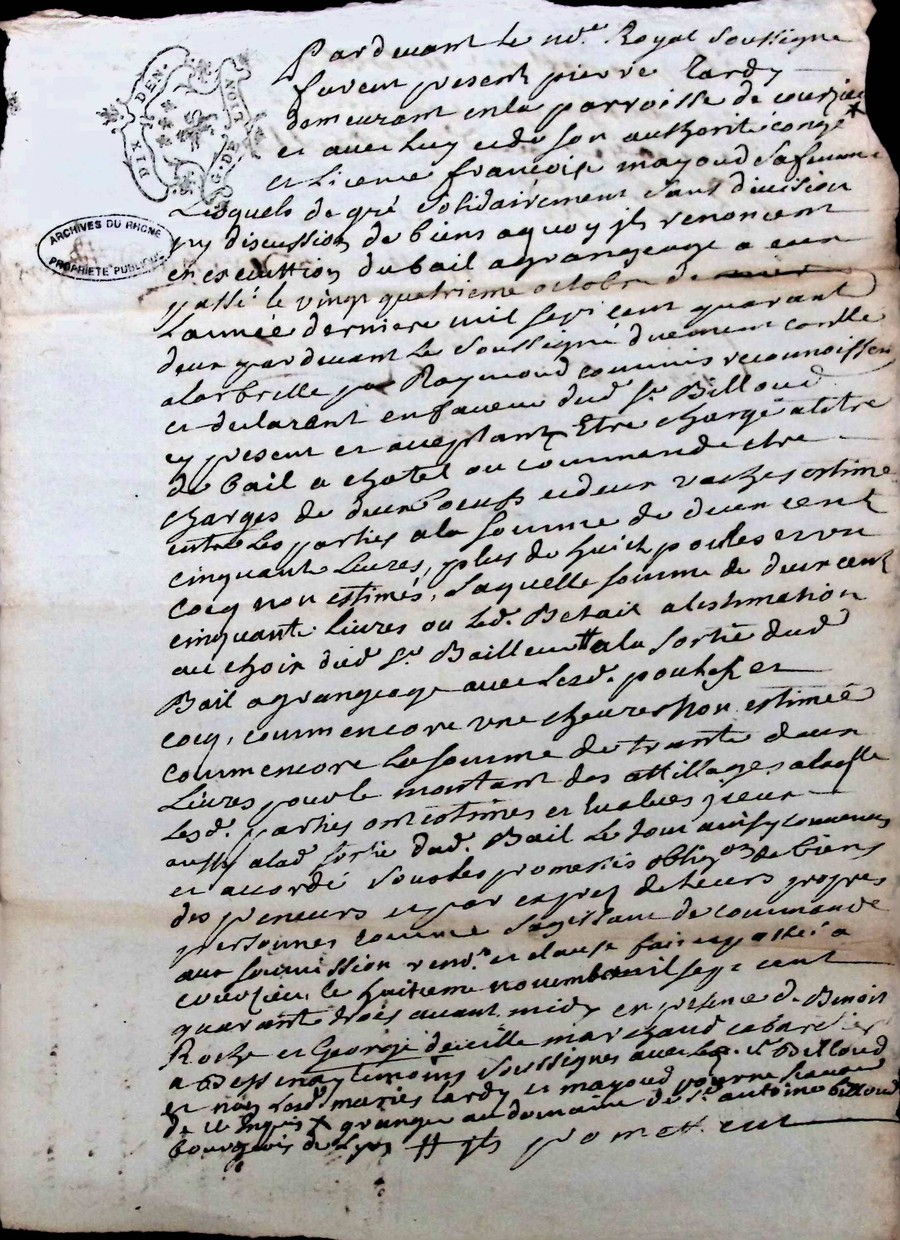 DIX DEN.
G. DE
ARCHIVES DU RHONE
PROPRIETE PUBLIQUE
Pardevant le not.re Royal soussigne
furent present pierre Tardy
demeurant en la parroisse de courzieu *
et avec luy et de son authorité congé
et licence francoise mayoud sa femme
Lesquels de gré solidairement sans division
ny discussion de biens a quoy jls renoncent
en execution du bail a grangeage a eux
passé le vingt quatrieme octobre de
L'année derniere mil sept cent quarante
deux pardevant le soussigné duement contlle
a larbrelle par Raymond commis reconnoissen
et declarent en faveur dud sr. Billoud
cy present et acceptant Etre chargé a titre
de bail a chatel ou commande etre
charges de deux boeufs et deux vaches estime
entre les parties a la somme de deux cent
cinquante livres, plus de huict poules et un
cocq non estimés, Laquelle somme de deux cent
cinquante livres ou led. Betail a lestimation
au choix dud sr. Bailleur # a la sortie dud
Bail a grangeage avec lesd. poules et
cocq, comm encore une chevre non estimée
comm encore la somme de trante deux
Livres pour le montant des attillages a laqlle
Lesd. parties ont estimes et evalues jceux
aussy a lad sortie dud. Bail le tout ainsy convenus
et accordé sous les promesses obligons de biens
des preneurs et par exprez de leurs propres
personnes comme sagissant de commande
aux soumission renons et clause fait et passé a
courzieu, le huitieme novembre mil sept cent
quarante trois avant midy en presence de Benoit
Roche et George marchand cabaretier
a Bessenay temoins soussignes avec led. sr Billoud
et non lesd. maries tardy et mayoud pour ne scavoir
de ce enquis x granger au domaine de sr. antoine billoud
bourgeois de Lyon # jls promettent